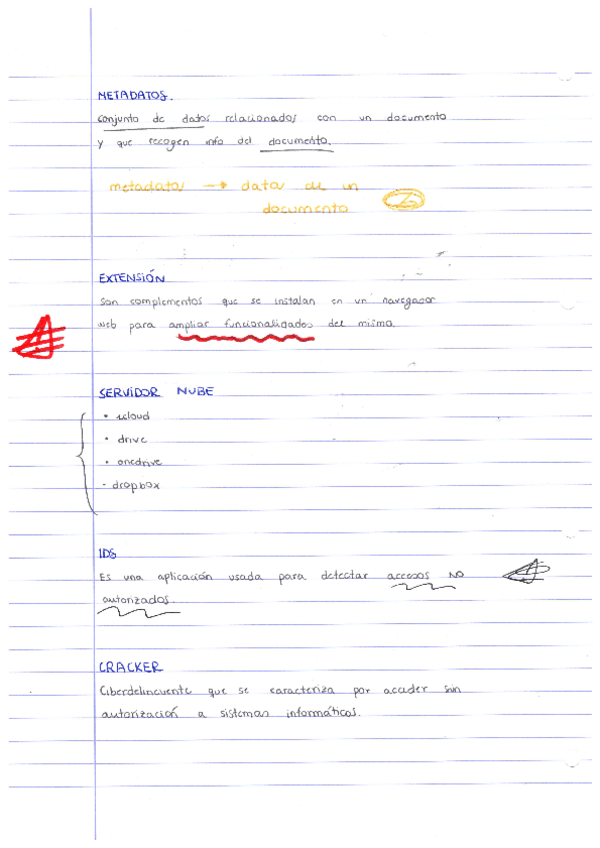 METADATOS.
conjunto de datos relacionados con un documento
y que recogen info del documento.
metadatos → datos de un
documento
EXTENSIÓN
Son complementos que se instalan en un navegador
web para ampliar funcionalidades del mismo.
SERVIDOR NUBE
• icloud
• drive
• onedrive
- dropbox
IDS
Es una aplicación usada para detectar accesos NO
autorizados
CRACKER
Ciberdelincuente que se caracteriza por acceder sin
autorización a sistemas informáticos.